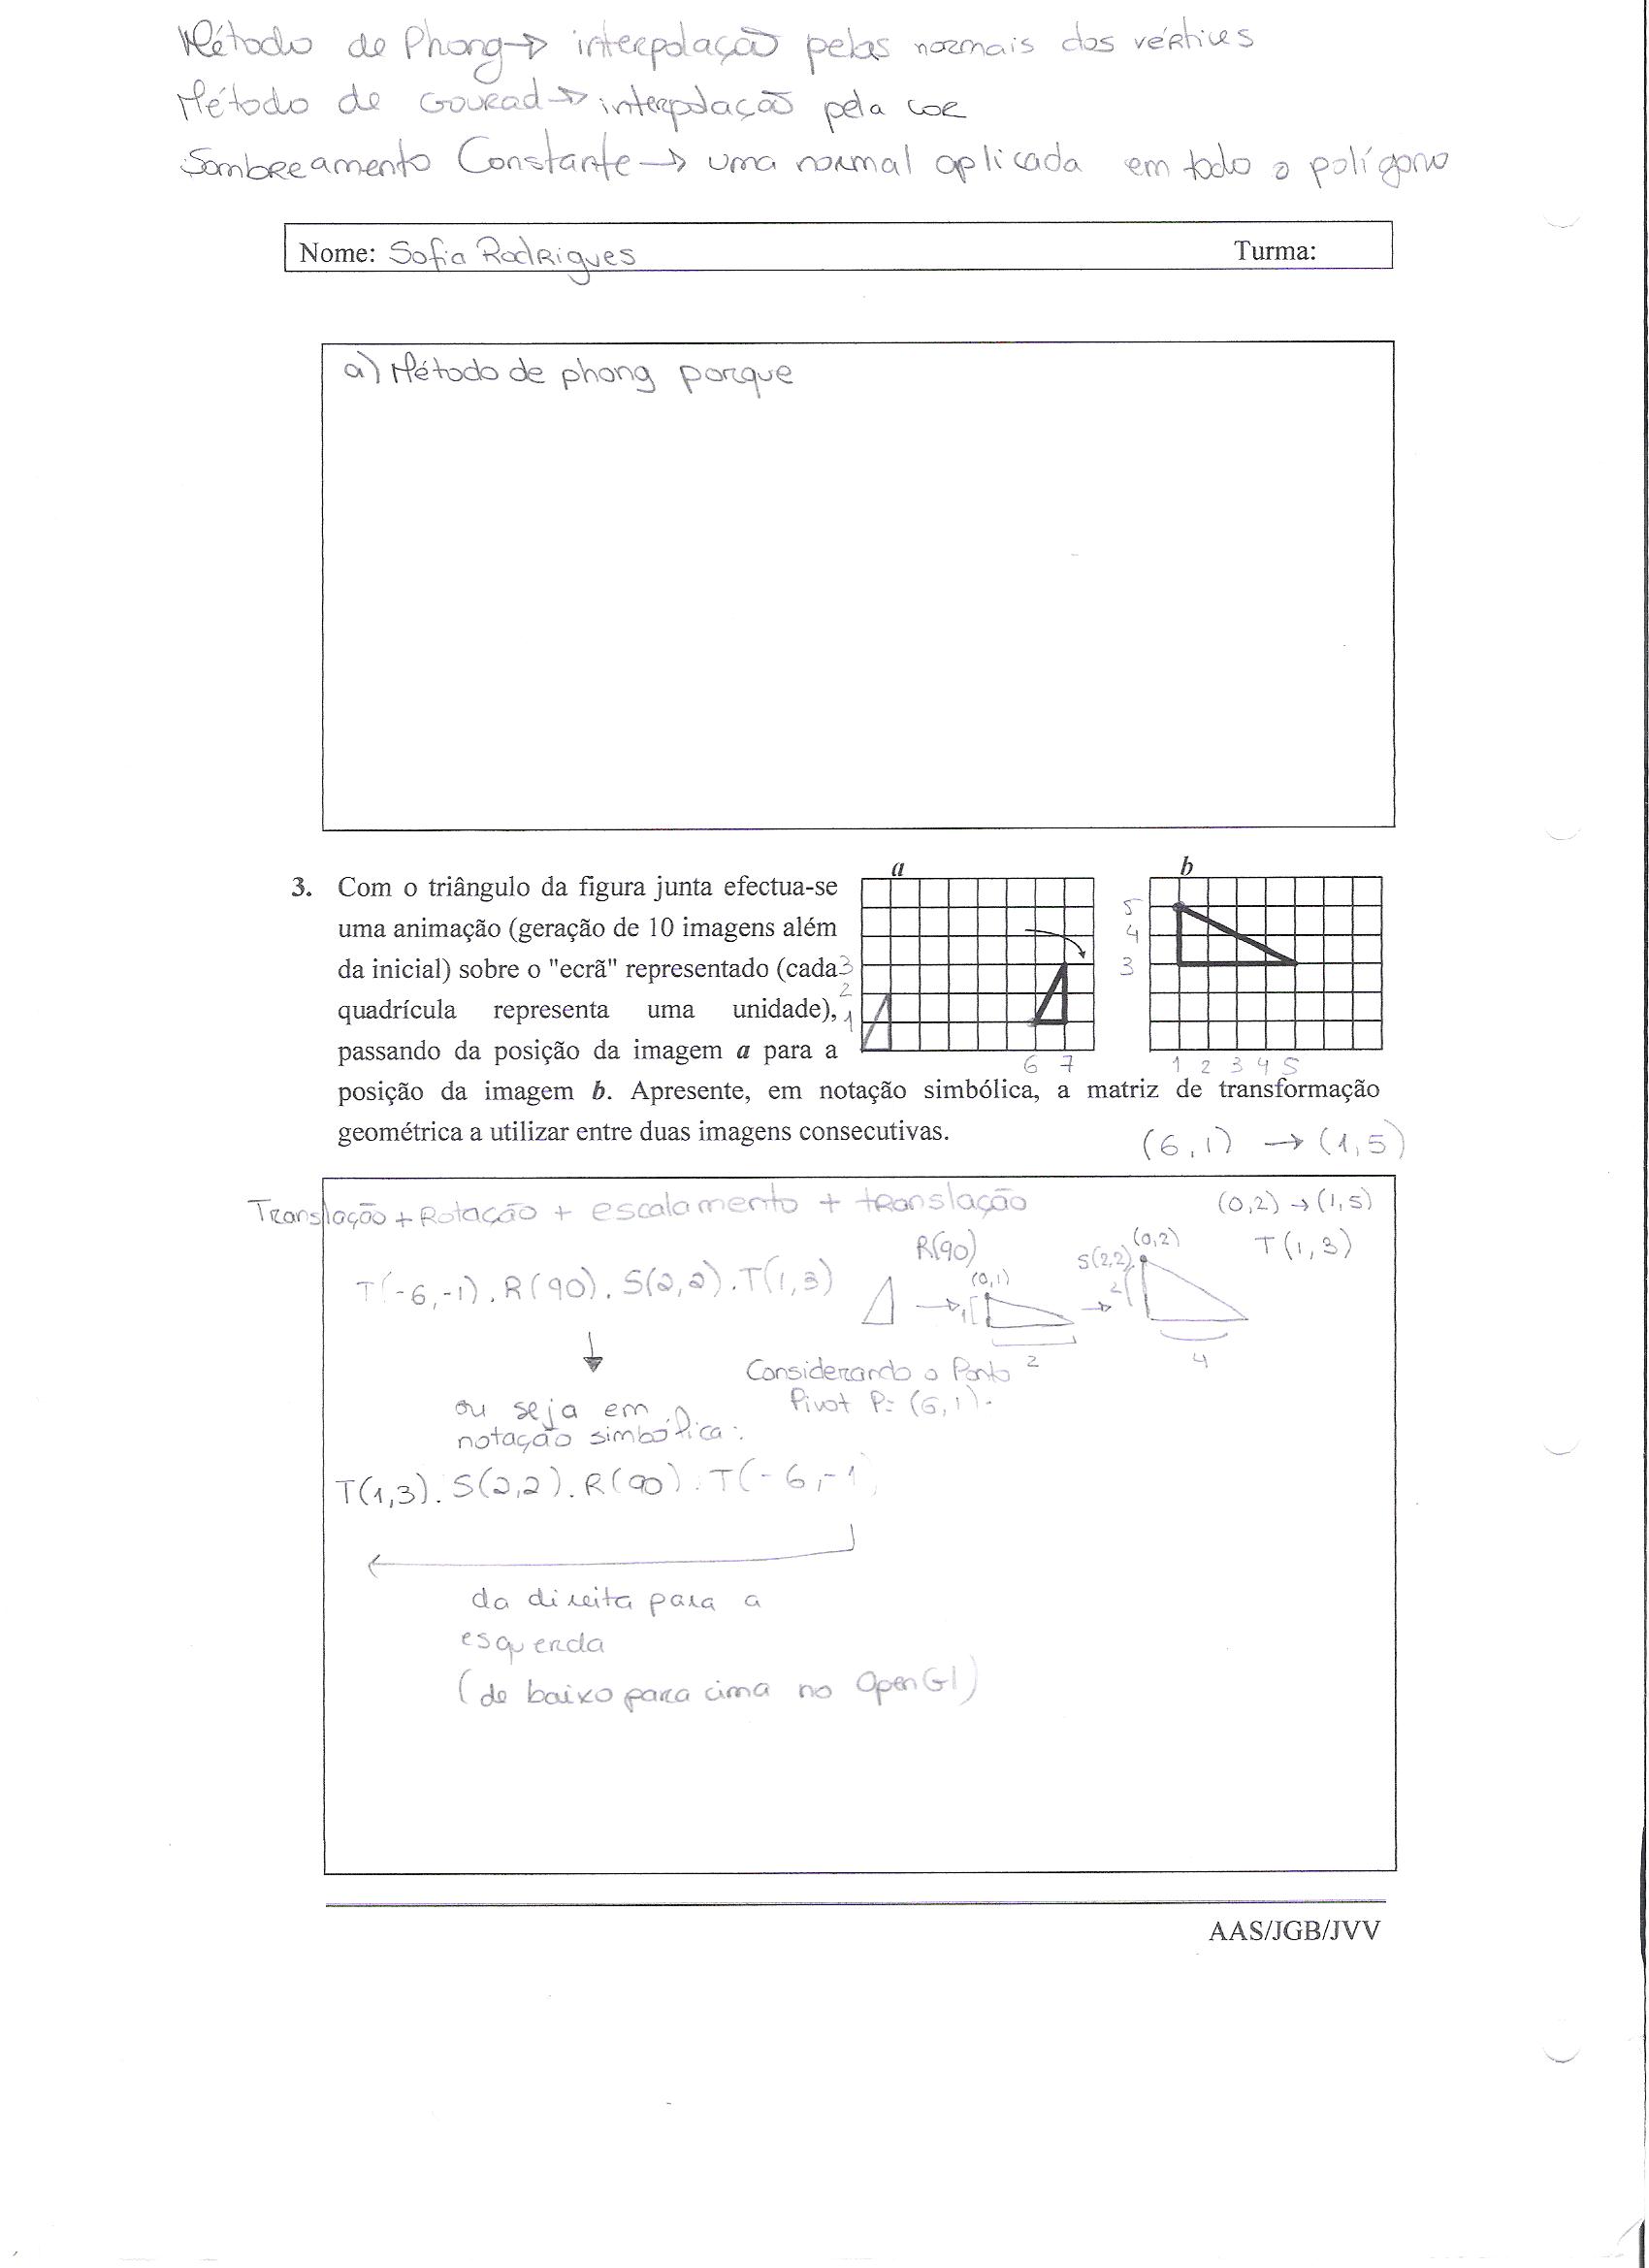 Método de Phong → interpolação pelas normais dos vértices
Método de Gourad → interpolação pela cor
Sombreamento Constante → uma normal aplicada em todo o polígono
Nome: Sofia Rodrigues Turma:
a) Método de phong porque
3. Com o triângulo da figura junta efectua-se
uma animação (geração de 10 imagens além
da inicial) sobre o "ecrã" representado (cada
quadrícula representa uma unidade),
passando da posição da imagem a para a
posição da imagem b. Apresente, em notação simbólica, a matriz de transformação
geométrica a utilizar entre duas imagens consecutivas.
a
3
2
1
6 7
b
5
4
3
1 2 3 4 5
(6,1) → (1,5)
Translação + Rotação + escalamento + translação
(0,2) → (1,5)
T(1,3)
T(-6,-1) . R(90) . S(2,2) . T(1,3)
R(90)
(0,1)
→ 1
2
S(2,2)
(0,2)
→ 2
4
Considerando o Ponto
Pivot P= (6,1).
ou seja em
notação simbólica:
T(1,3) . S(2,2) . R(90) . T(-6,-1)
da direita para a
esquerda
(de baixo para cima no OpenGl)
AAS/JGB/JVV